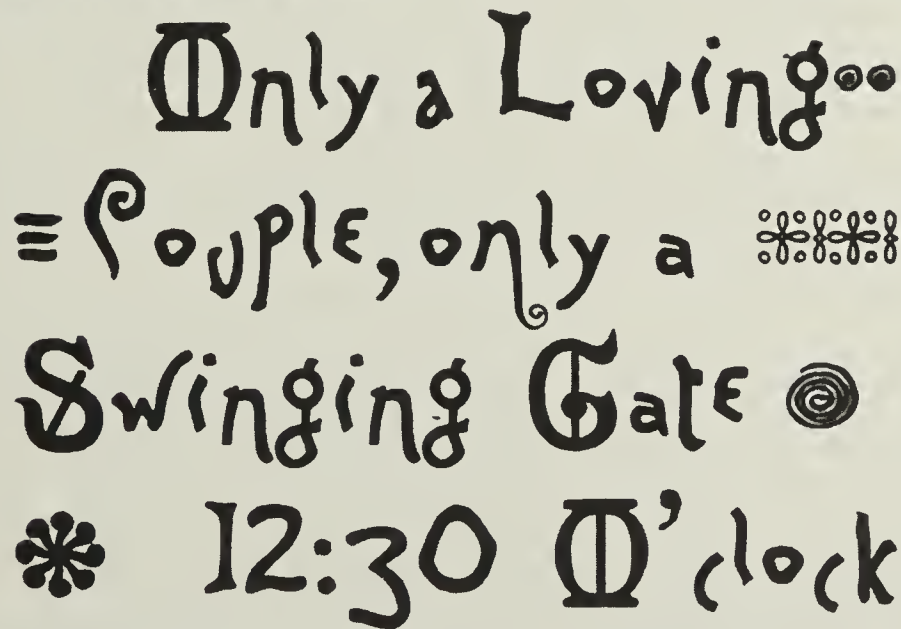 Only a Loving
Couple, only a
Swinging Gate
12:30 O'clock